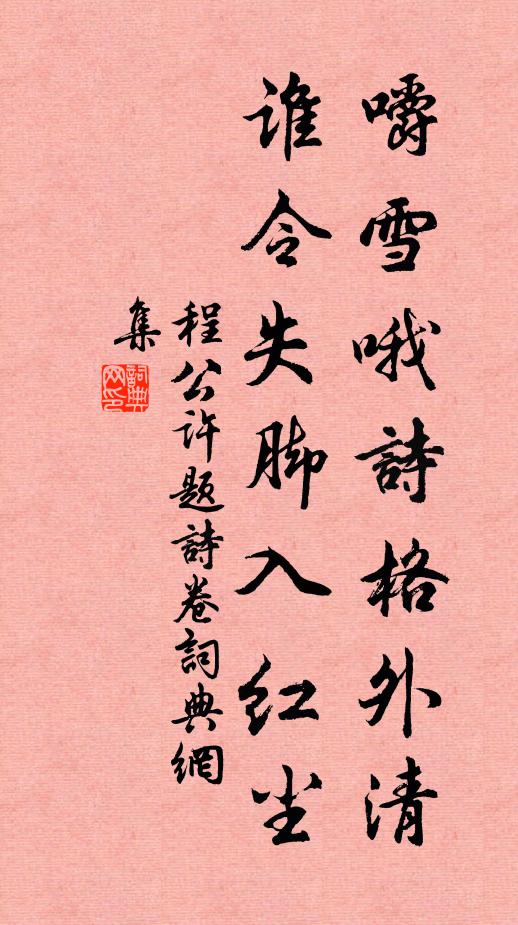 嚼雪哦詩格外清
谁令失脚入红尘
程公许题詩卷詞典網
集
詞典网印